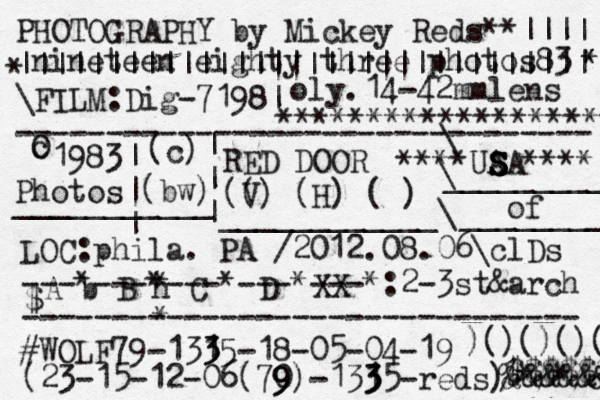 PHOTOGRAPHY by Mickey Reds** ||||
*nineteen eighty three photos83*
\FILM:Dig-7198 oly.14-42mmlens
*******************
1983 (c) RED DOOR ****USA****
Photos (bw) (V) (H) ( ) \ of
LOC:phila. PA /2012.08.06\clDs
$A * b B * h C * D * XX *:2-3st&arch
#WOLF79-1335-18-05-04-19 )()()()(
(23-15-12-06(79)-1335-reds/